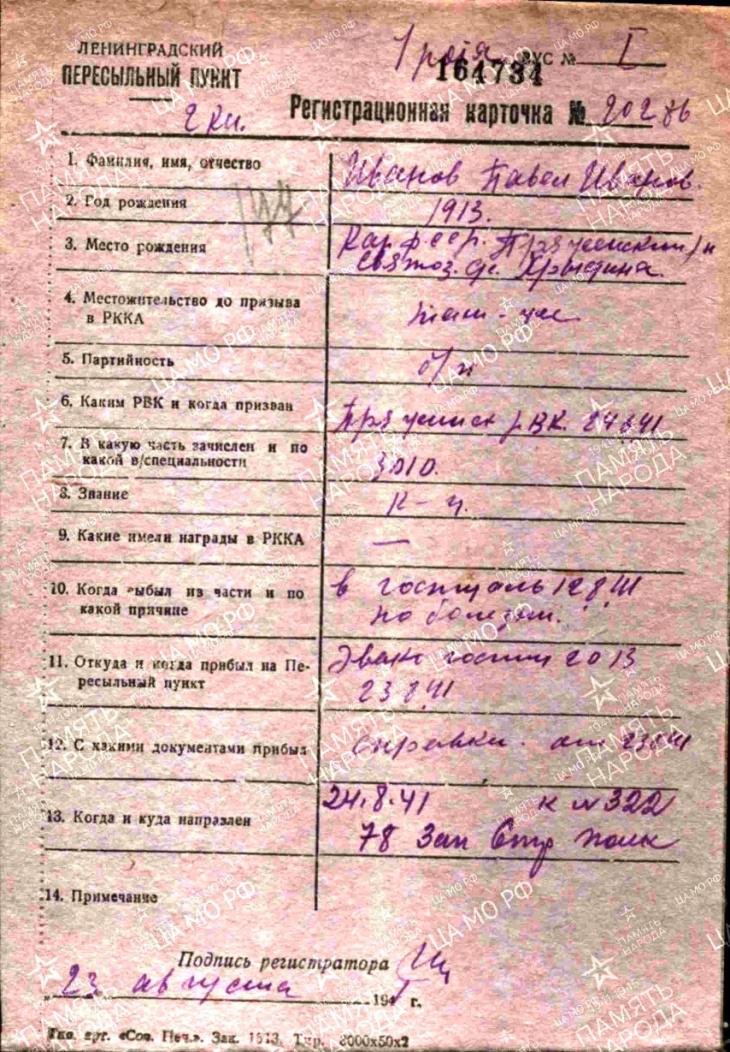 ЛЕНИНГРАДСКИЙ
ПЕРЕСЫЛЬНЫЙ ПУНКТ
1 рота
ВУС № I
164734
2 кл.
Регистрационная карточка № 20286
1. Фамилия, имя, отчество Иванов Павел Иванов.
2. Год рождения 1913.
177
3. Место рождения Кар. ф сср. Пряжинский р/н
Святоз. с/с
4. Местожительство до призыва
в РККА там-же
5. Партийность б/п
6. Каким РВК и когда призван Пряжинск РВК. 24641
7. В какую часть зачислен и по
какой в/специальности 3010.
8. Знание к-ц.
9. Какие имели награды в РККА —
10. Когда выбыл из части и по
какой причине
в госпиталь 12841
по болезни.
11. Откуда и когда прибыл на Пе-
ресыльный пункт
Эвако госпит 2013
23841
12. С какими документами прибыл справки. от 23841
13. Когда и куда направлен
24.8.41 к №322
78 Зап Стр полк
14. Примечание
Подпись регистратора
„23 августа 1941 г.
Тко. арт. «Сов. Печ.». Зак. 1513. Тир. 8000х50х2
ПАМЯТЬ НАРОДА
ЦАМО.РФ